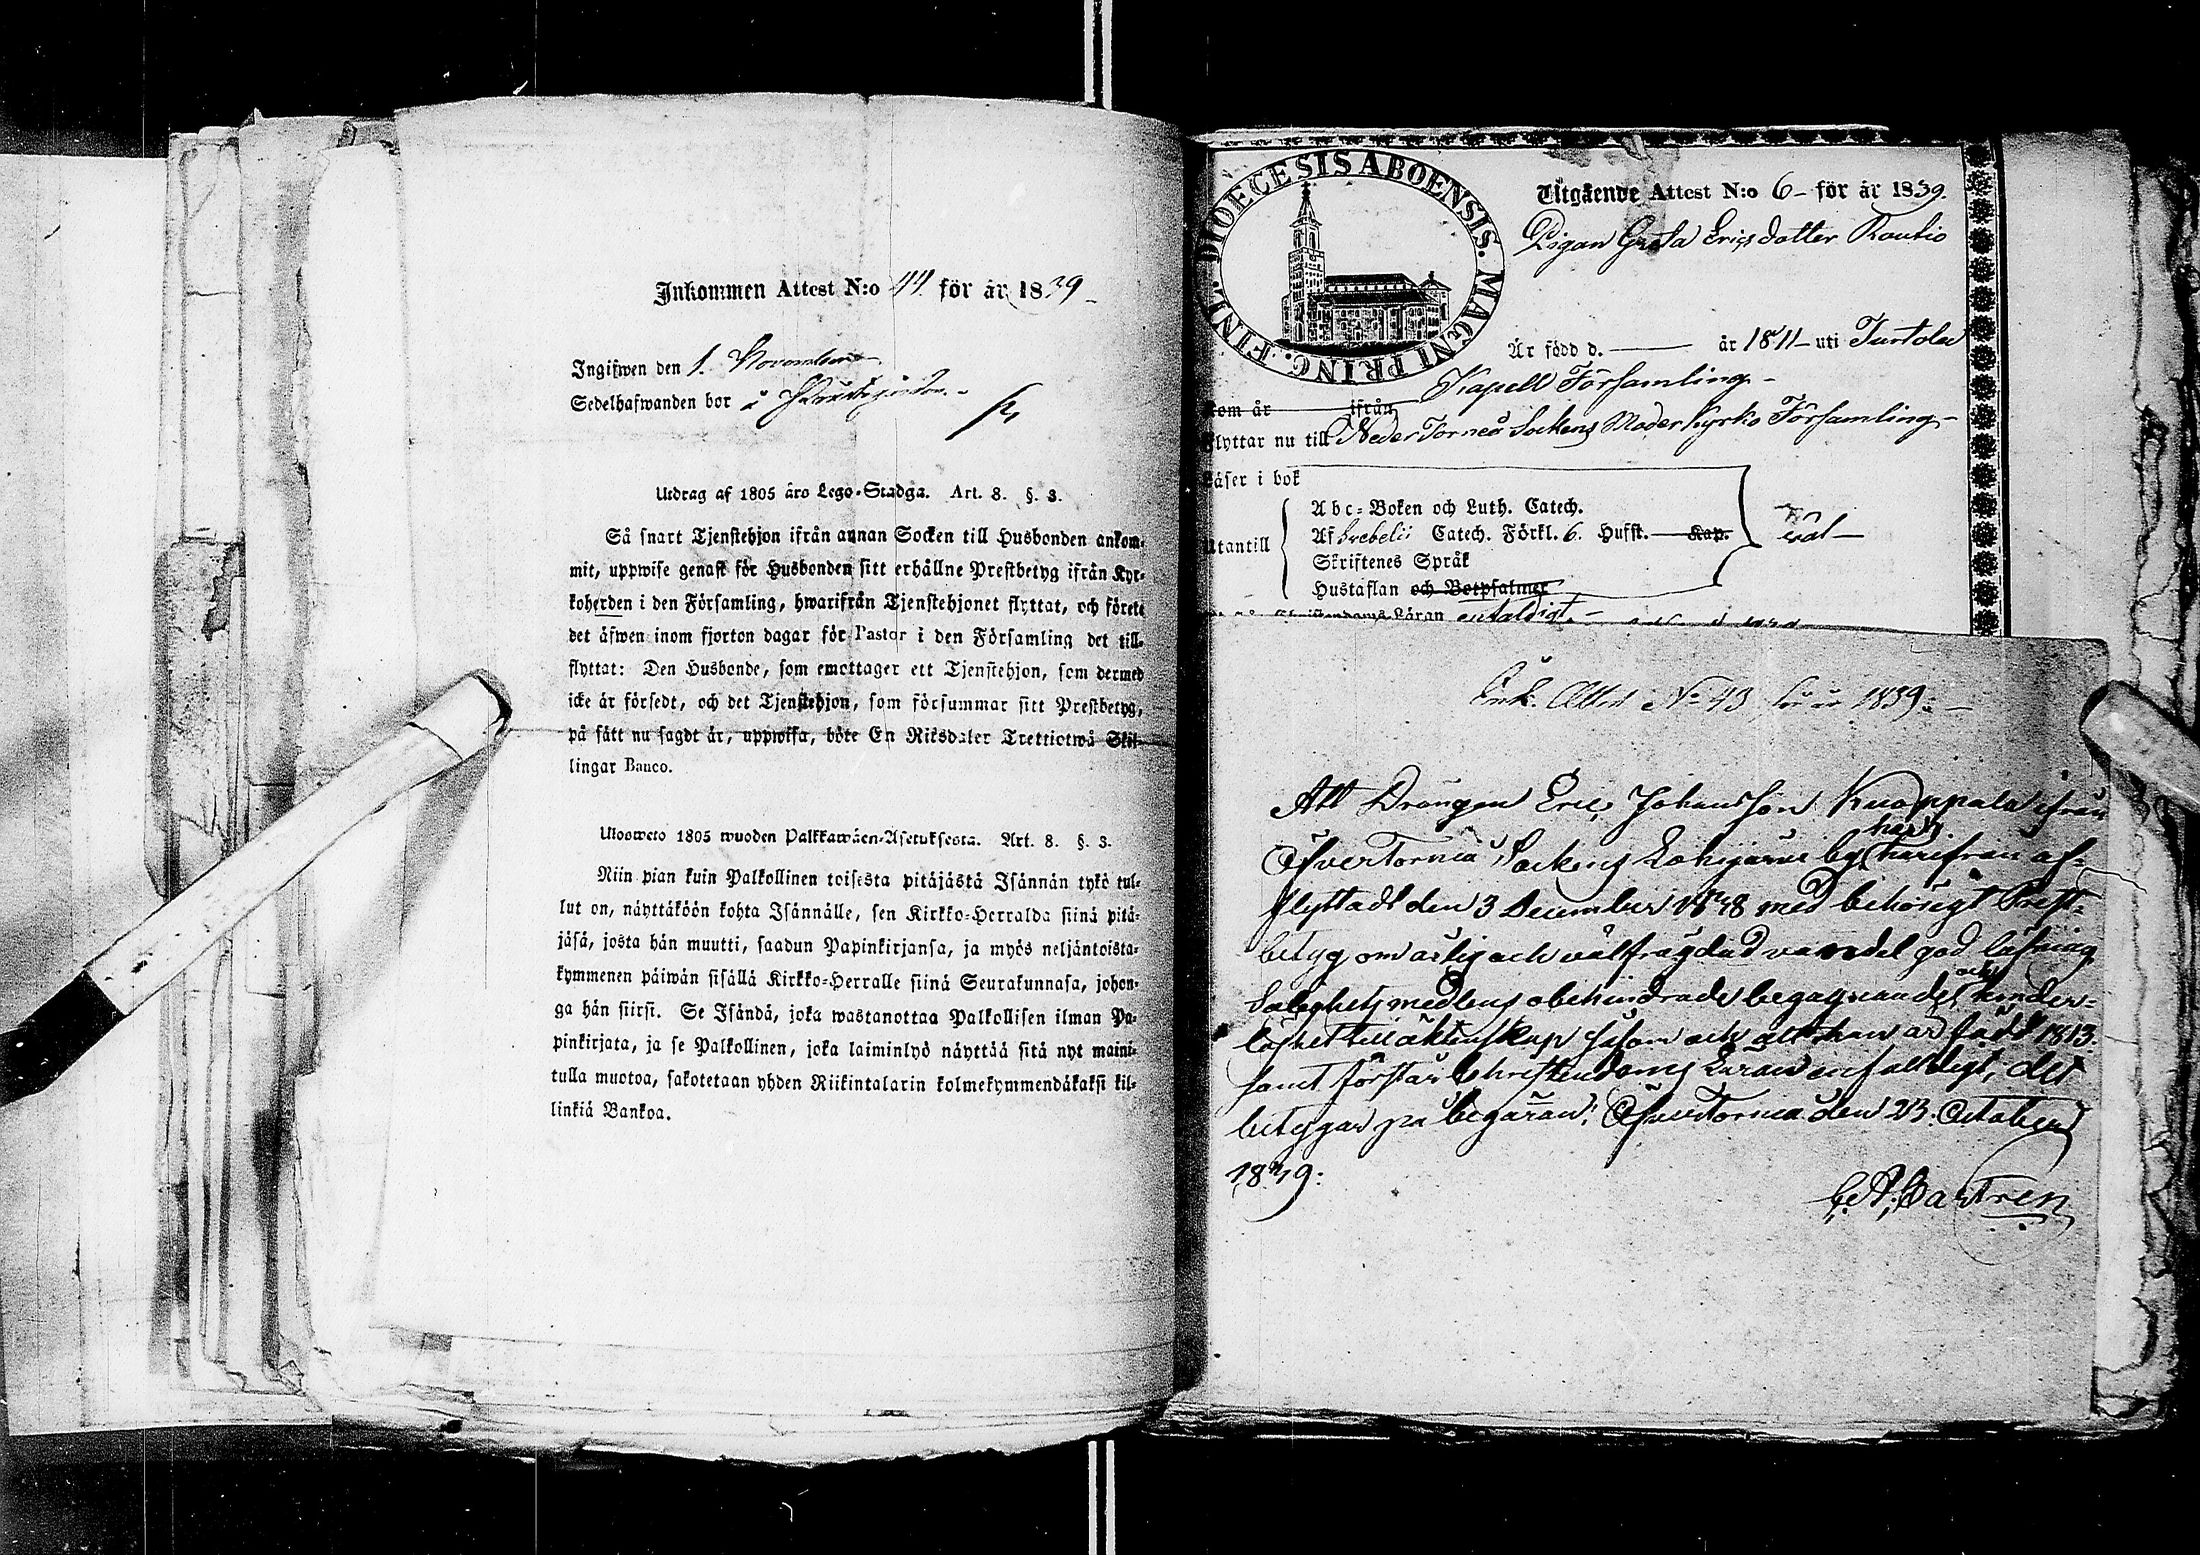 Inkommen Attest N:o 44 för år 1839
Ingifwen den 1. November
Sedelhafwanden bor i
Utdrag af 1805 års Lego-Stadga. Art. 8. §. 3.
Så snart Tjenstehjon ifrån annan Socken till Husbonden ankom-
mit, uppwise genast för Husbonden sitt erhållne Prestbetyg ifrån Kyr-
koherden i den Församling, hwarifrån Tjenstehjonet flyttat, och förete
det äfwen inom fjorton dagar för Pastor i den Församling det till-
flyttat: Den Husbonde, som emottager ett Tjenstehjon, som dermed
icke är försedt, och det Tjenstehjon, som försummar sitt Prestbetyg,
på sätt nu sagdt är, uppwisa, böte En Riksdaler Trettiotwå Skil-
lingar Banco.
Ulosweto 1805 wuoden Palkkawäen-Asetuksesta. Art. 8. §. 3.
Niin pian kuin Palkollinen toisesta pitäjästä Isännän tykö tul-
lut on, näyttäköön kohta Isännälle, sen Kirkko-Herralda siinä pitä-
jäsä, josta hän muutti, saadun Papinkirjansa, ja myös neljäntoista-
kymmenen päiwän sisällä Kirkko-Herralle siinä Seurakunnasa, johon-
ga hän siirsi. Se Isändä, joka wastanottaa Palkollisen ilman Pa-
pinkirjata, ja se Palkollinen, joka laiminlyö näyttää sitä nyt maini-
tulla muotoa, sakotetaan yhden Riikintalarin kolmekymmendäkaksi kil-
linkiä Bankoa.
DIOECESIS ABOENSIS. MAGNI PRINC. FINL.
Utgående Attest N:o 6 för år 1839.
Pigan Greta Ericsdotter Rautio
Är född d. — år 1811 uti Turtola
Kapell Församling
kom år ifrån
flyttar nu till Neder Torneå Sockens Moderkyrko Församling
Läser i bok
Utantill
Abc-Boken och Luth. Catech.
Af Svebelii Catech. Förkl. 6. Hufst. Kap.
Skriftenes Språk
Hustaflan och Botpsalmer
väl
Läran enfaldigt
Ink. Attest No 43 för år 1839
Att Drängen Eric Johansson Knoppala ifrån
ÖfverTorneå Sockens Lohijärvi by härifrån af-
flyttadt den 3 December 1838 med behörigt Prest-
betyg om ärlig och välfrägdad vandel god läsning
Salighetsmedlens obehindrade begagnande och hinder-
löshet till äktenskap såsom ock att han är född 1813.
samt förstår Christendoms Läran enfalldigt, det
betygar på begäran; ÖfverTorneå den 23. October
1839.
C. A. Castren